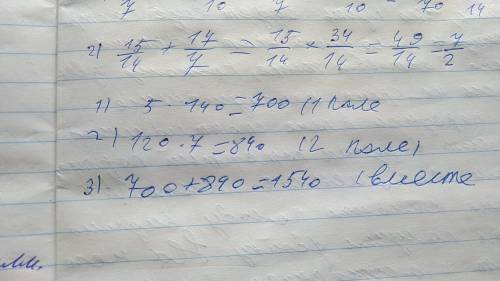 7 10 7 10 70 14
2) 15/14 + 17/7 = 15/14 + 34/14 = 49/14 = 7/2
1) 5 · 140 = 700 (1 поле
2) 120 · 7 = 840 (2 поле)
3) 700 + 840 = 1540 (вместе
мм.